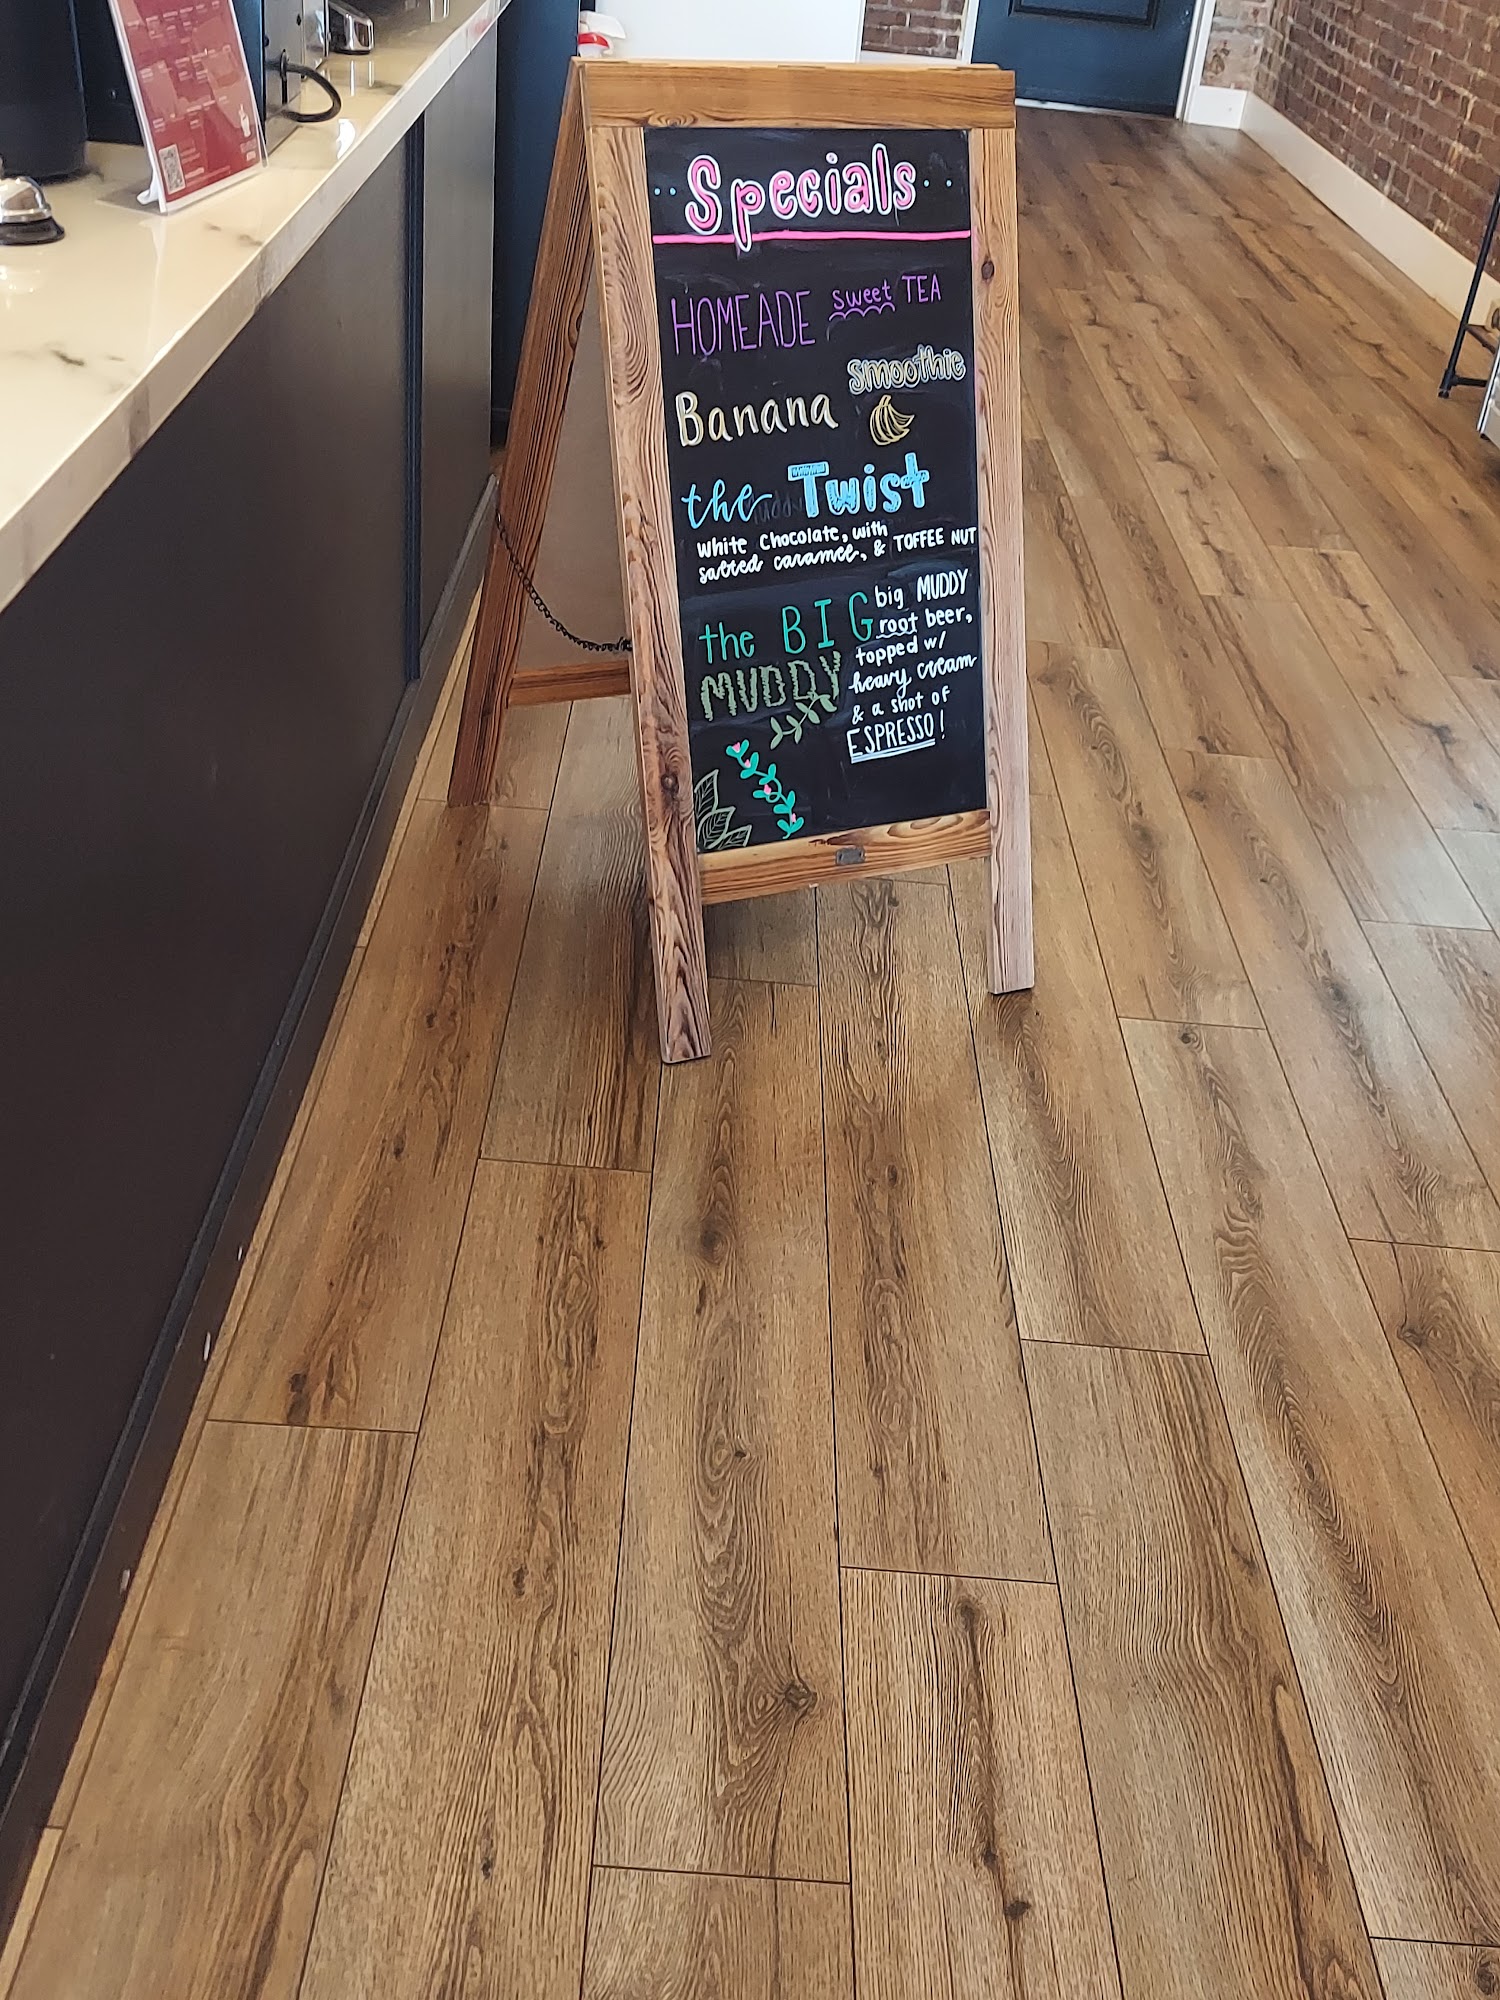 Specials
HOMEADE sweet TEA
Banana smoothie
the Twist
white chocolate, with
salted caramel, & TOFFEE NUT
the BIG
MUDDY
big MUDDY
root beer,
topped w/
heavy cream
& a shot of
ESPRESSO!